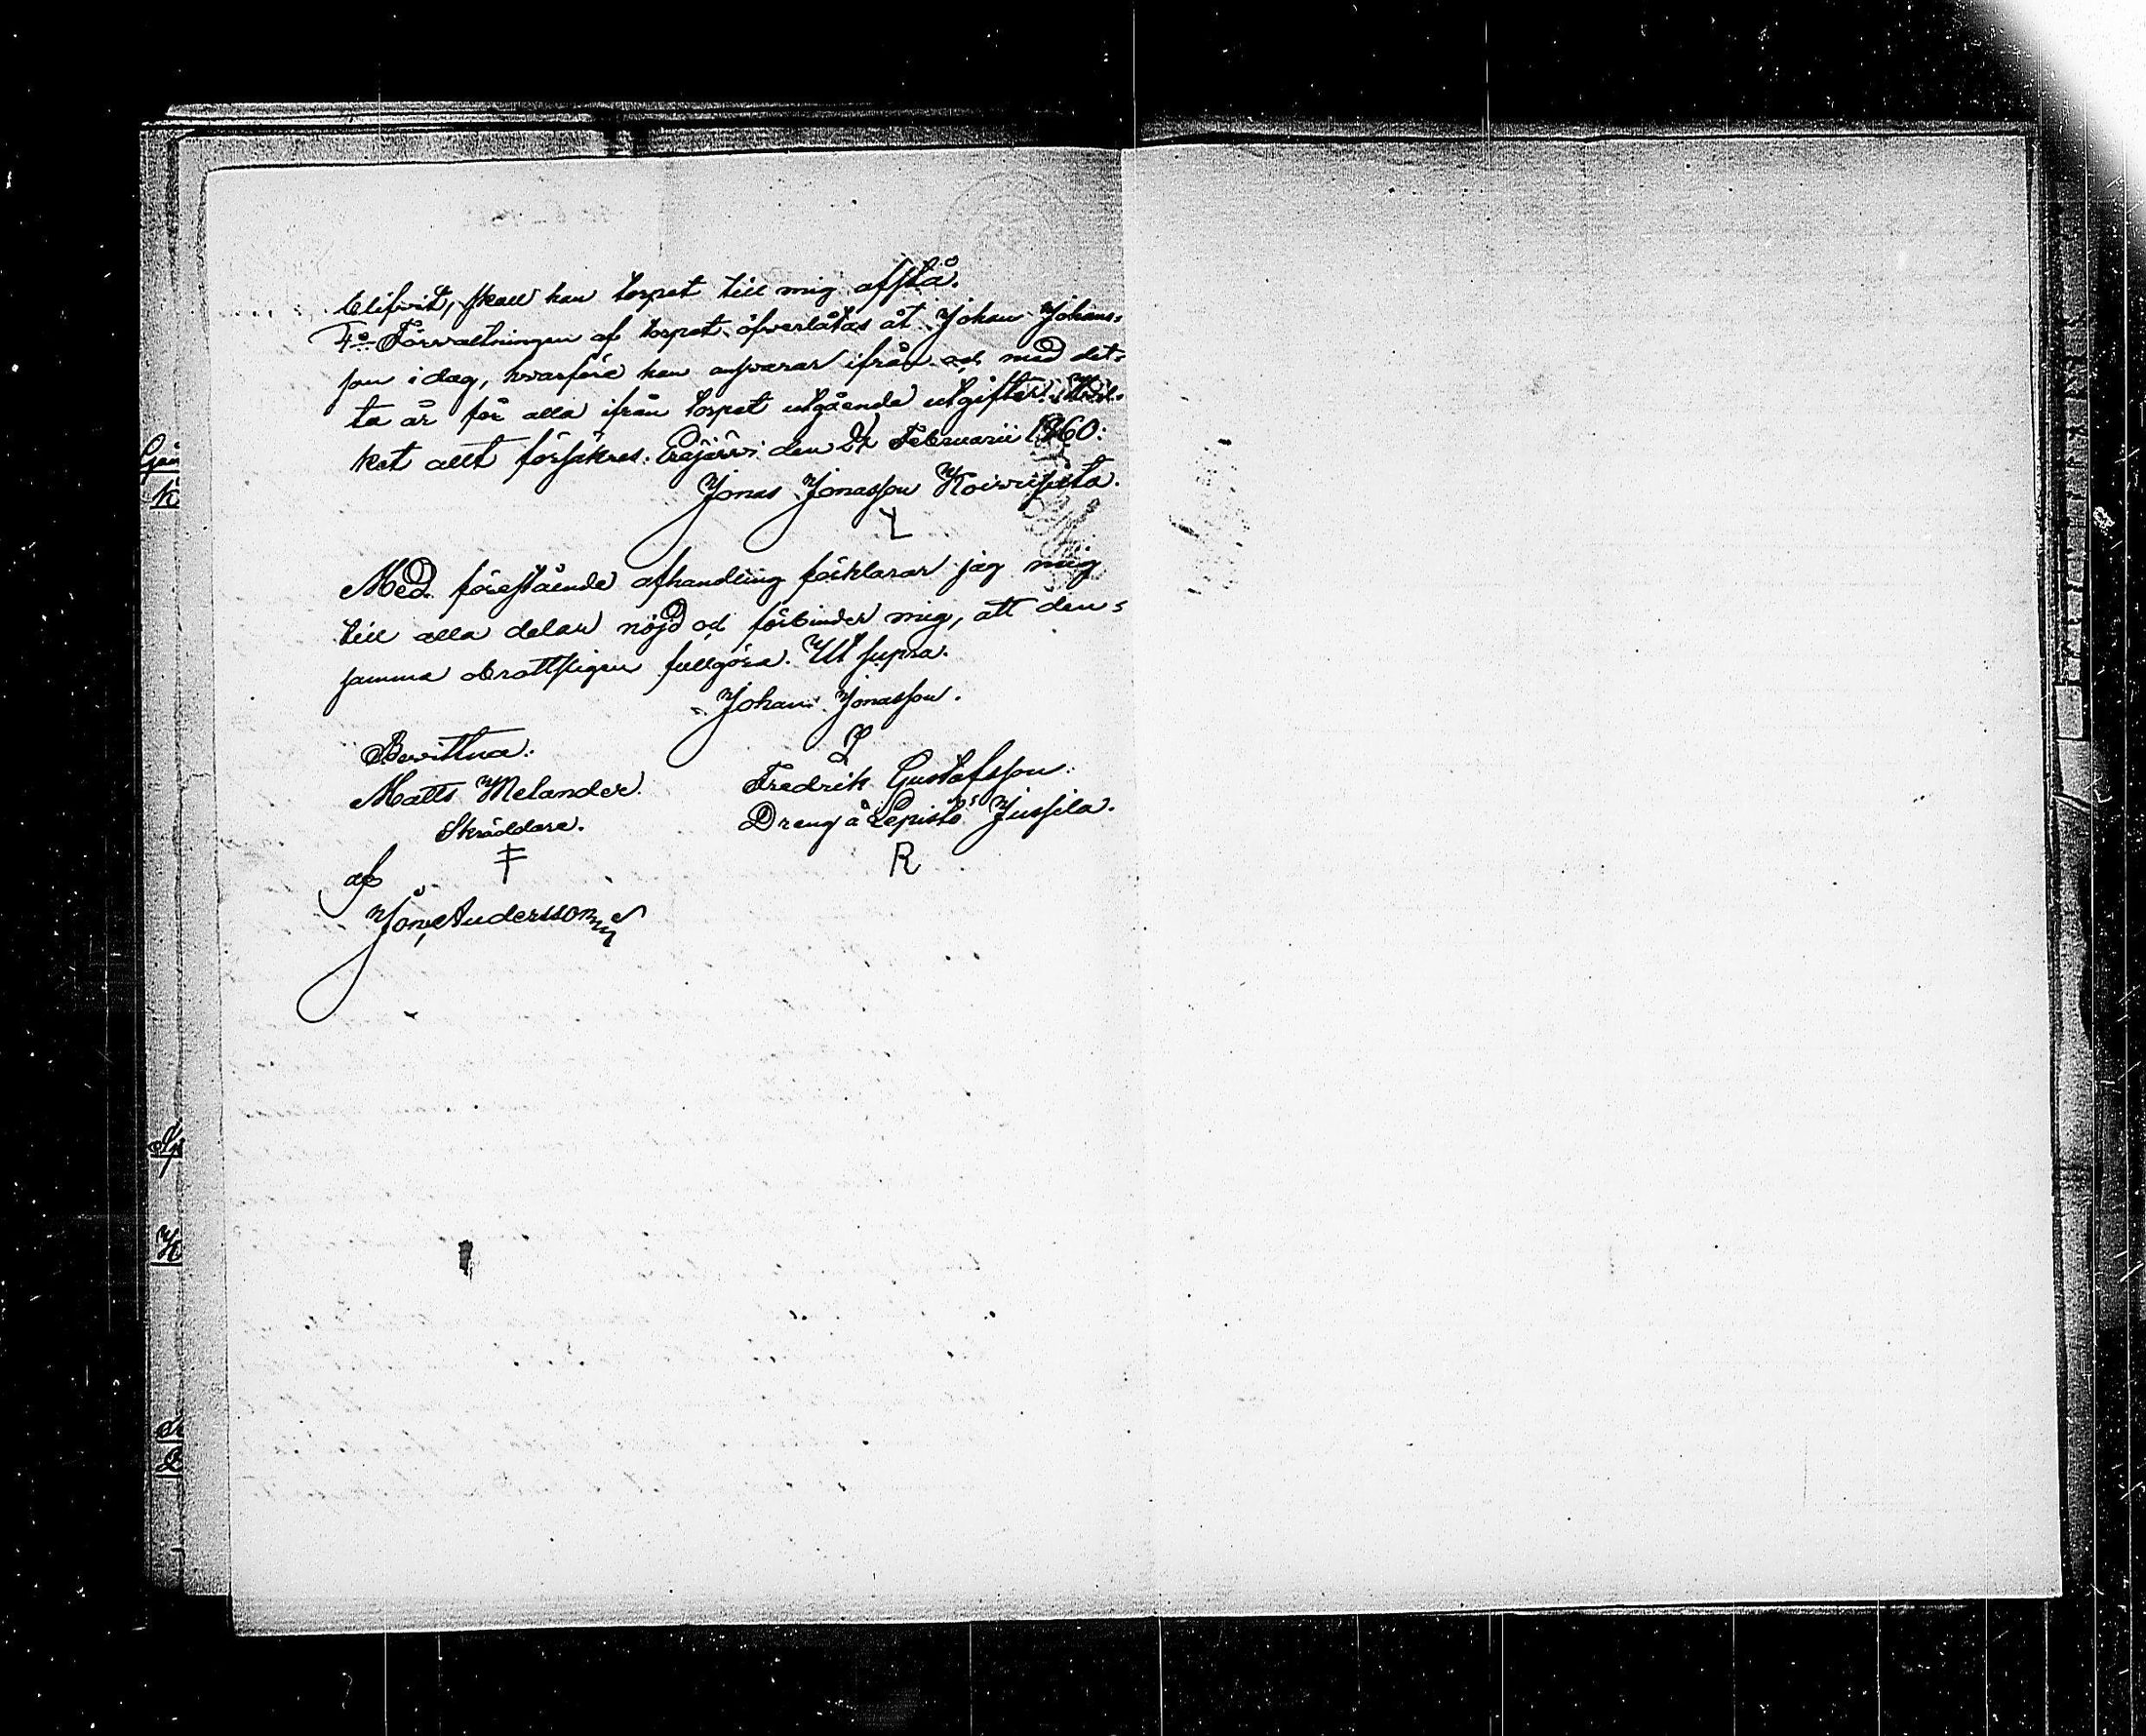 blifvit, skall han torpet till mig afstå.
4:o Förvaltningen af torpet öfverlåtes åt Johan Johans-
son i dag, hvarföre han ansvarar ifrån och med det-
ta år för alla ifrån torpet utgående utgifter. Hvil-
ket allt försäkras. Eräjärvi den 27 Februarii 1860.
Jonas Jonasson Koivisto.
Med förestående afhandling förklarar jag mig
till alla delar nöjd och förbinder mig, att den-
samma obrottsligen fullgöra. Ut supra.
Johan Jonasson.
Bevittna:
Matts Melander. Fredrik Gustafsson.
Skräddare. Dreng å Lepistö Jussila.
F R
af
Jon Andersson